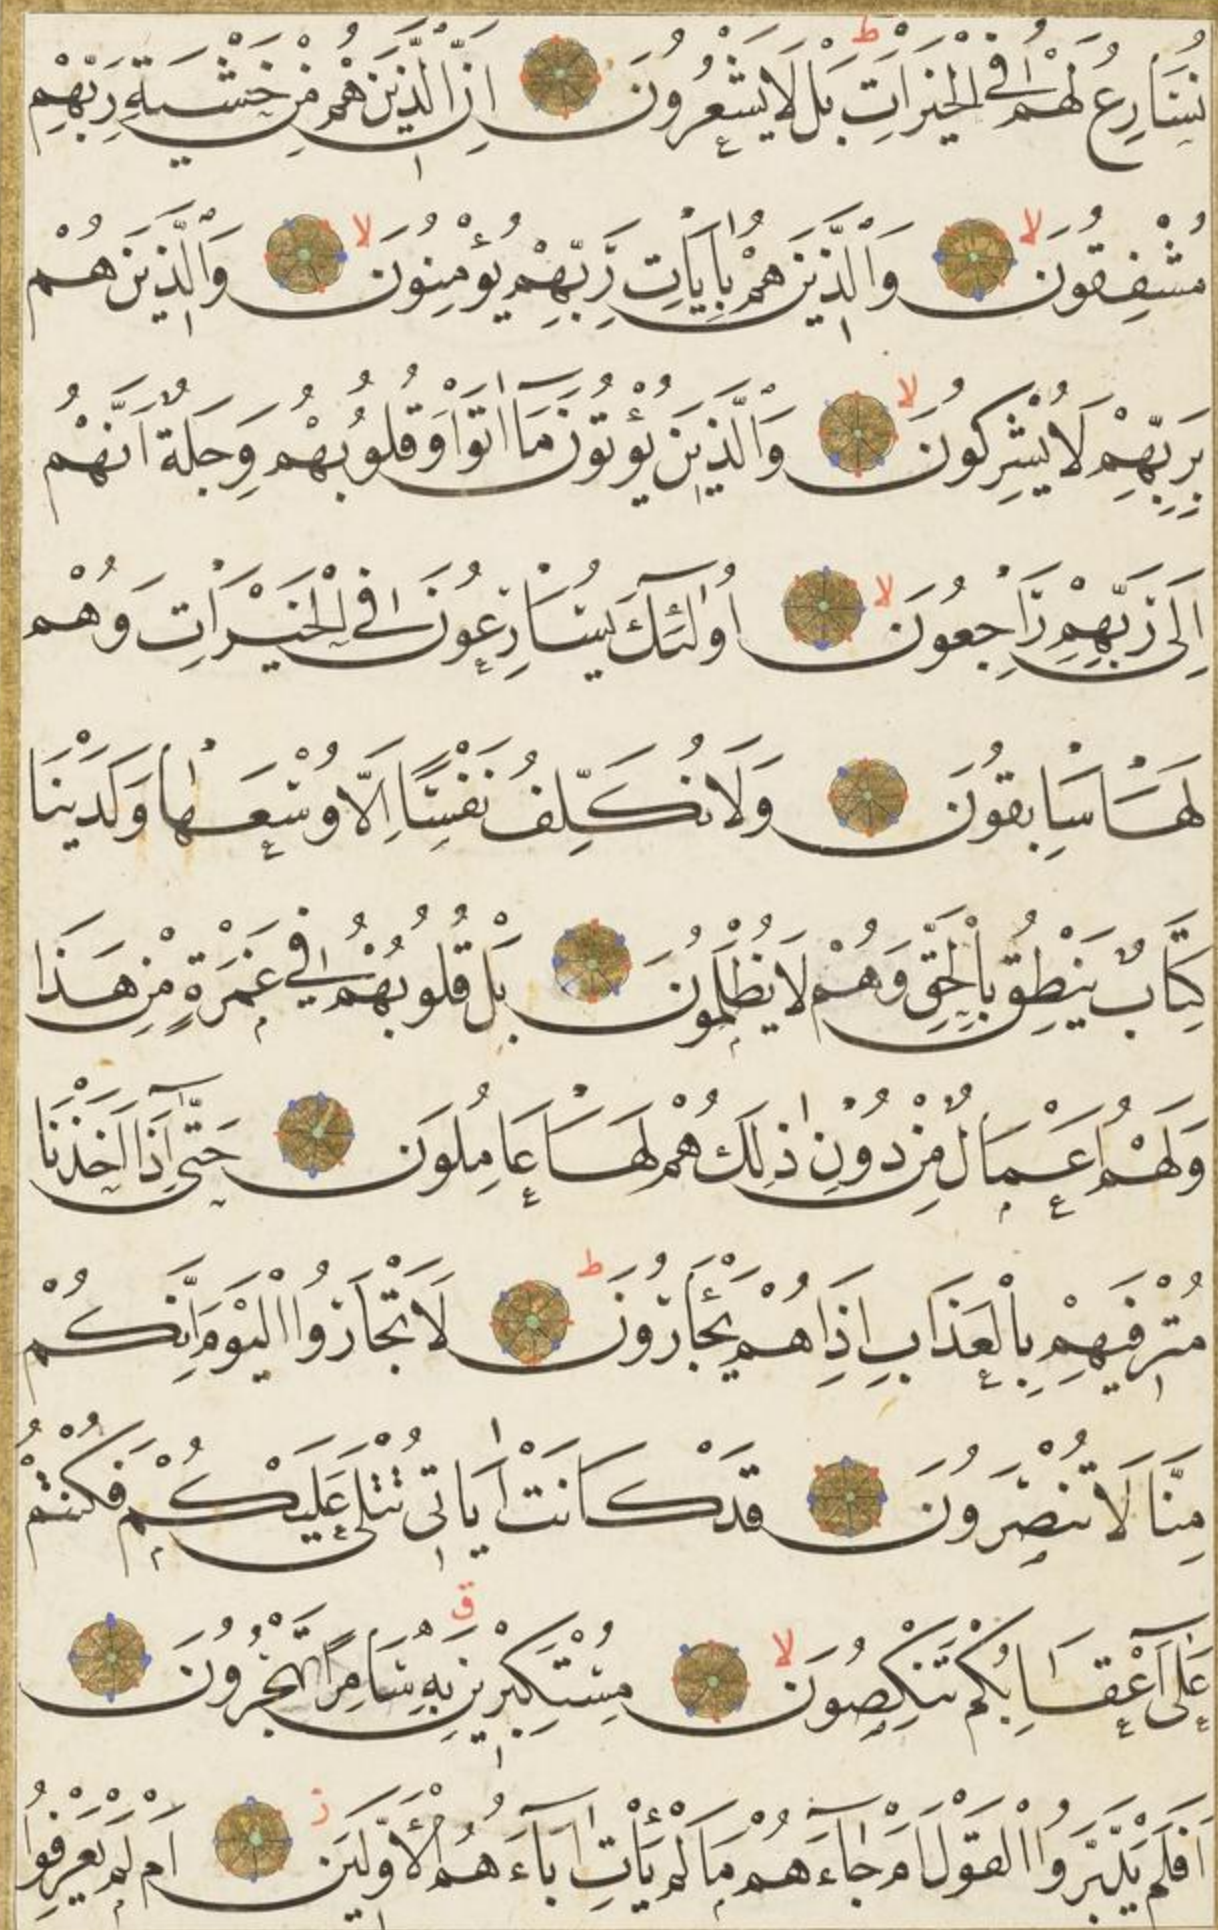 نُسَارِعُ لَهُمْ فِي الْخَيْرَاتِ ط بَل لَا يَشْعُرُونَ اِنَّ الَّذِينَ هُم مِنْ خَشْيَةِ رَبِّهِمْ
مُشْفِقُونَ لا وَالَّذِينَ هُمْ بِاٰيَاتِ رَبِّهِمْ يُؤْمِنُونَ لا وَالَّذِينَ هُم
بِرَبِّهِمْ لَا يُشْرِكُونَ لا وَالَّذِينَ يُؤْتُونَ مَٓا اٰتَوْا وَقُلُوبُهُمْ وَجِلَةٌ اَنَّهُمْ
اِلَى رَبِّهِمْ رَاجِعُونَ لا اُولٰٓئِكَ يُسَارِعُونَ فِي الْخَيْرَاتِ وَهُمْ
لَهَا سَابِقُونَ وَلَا نُكَلِّفُ نَفْسًا اِلَّا وُسْعَهَا وَلَدَيْنَا
كِتَابٌ يَنْطِقُ بِالْحَقِّ وَهُمْ لَا يُظْلَمُونَ بَلْ قُلُوبُهُمْ فِي غَمْرَةٍ مِنْ هَذَا
وَلَهُمْ اَعْمَالٌ مِنْ دُونِ ذٰلِكَ هُمْ لَهَا عَامِلُونَ حَتّٰٓى اِذَا اَخَذْنَا
مُتْرَفِيهِمْ بِالْعَذَابِ اِذَا هُمْ يَجْئَرُونَ ط لَا تَجْأَرُوا الْيَوْمَ اِنَّكُمْ
مِنَّا لَا تُنْصَرُونَ قَدْ كَانَتْ اٰيَاتِي تُتْلَى عَلَيْكُمْ فَكُنْتُمْ
عَلٰٓى اَعْقَابِكُمْ تَنْكِصُونَ لا مُسْتَكْبِرِينَ بِهِ ق سَامِرًا تَهْجُرُونَ
اَفَلَمْ يَدَّبَّرُوا الْقَوْلَ اَمْ جَٓاءَهُمْ مَا لَمْ يَأْتِ اٰبَٓاءَهُمُ الْاَوَّلِينَ ز اَمْ لَمْ يَعْرِفُوا